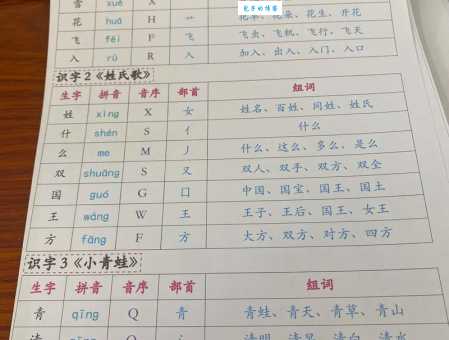 雪 xuě X
花 huā H 艹 花草、花朵、花生、开花
飞 fēi F 飞 飞虫、飞机、飞行、飞天
入 rù R 入 加入、出入、入门、入口
识字2《姓氏歌》
生字 拼音 音序 部首 组词
姓 xìng X 女 姓名、百姓、同姓、姓氏
什 shén S 亻 什么
么 me M 丿 什么、这么、多么、怎么
双 shuāng S 又 双人、双手、双方、双全
国 guó G 囗 中国、国宝、国王、国土
王 wáng W 王 王子、王后、国王、女王
方 fāng F 方 大方、双方、对方、四方
识字3《小青蛙》
生字 拼音 音序 部首 组词
青 qīng Q 青 青蛙、青天、青草、青山
清 qīng Q 氵 清明、清早、清白、清水